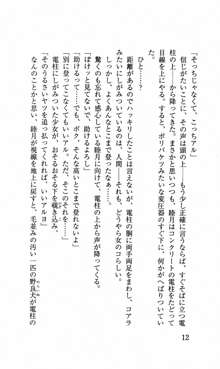 「そっちじゃなくて、こっちアル」
信じがたいことに、その声は頭の上——もう少し正確に言うなら、すぐそばに立つ電
柱の上——から降ってきた。まさかと思いつつも、睦月はコンクリートの電柱をたどって
目線を上にずらす。と、ポリバケツみたいな変圧器のすぐ下に、何かがへばりついて
いた。
ひと……？
距離があるのでハッキリしたことは言えないが、電柱の胴に両手両足をまわし、コアラ
みたいにしがみついているのは、人間——それも、どうやら女のコらしい。
「なんで、あんなところまで登ったかなぁ……」
驚くのも忘れて感心したように見上げる睦月に向けて、電柱の上から声が降ってくる。
「ぼけっと見てないで、助けるヨロシ」
「助けるって……でも、ボク、そんな高いとこまで登れないし」
「別に登ってこなくていいアル。ただ、そこのそれを……」
電柱にしがみついた少女が、おそるおそる下を指さす。
「そこにいるヤツを追っ払ってくれれば、いいアルヨ」
なんのことかと思い、睦月が視線を地上に戻すと、毛並みの汚い一匹の野良犬が電柱の
12